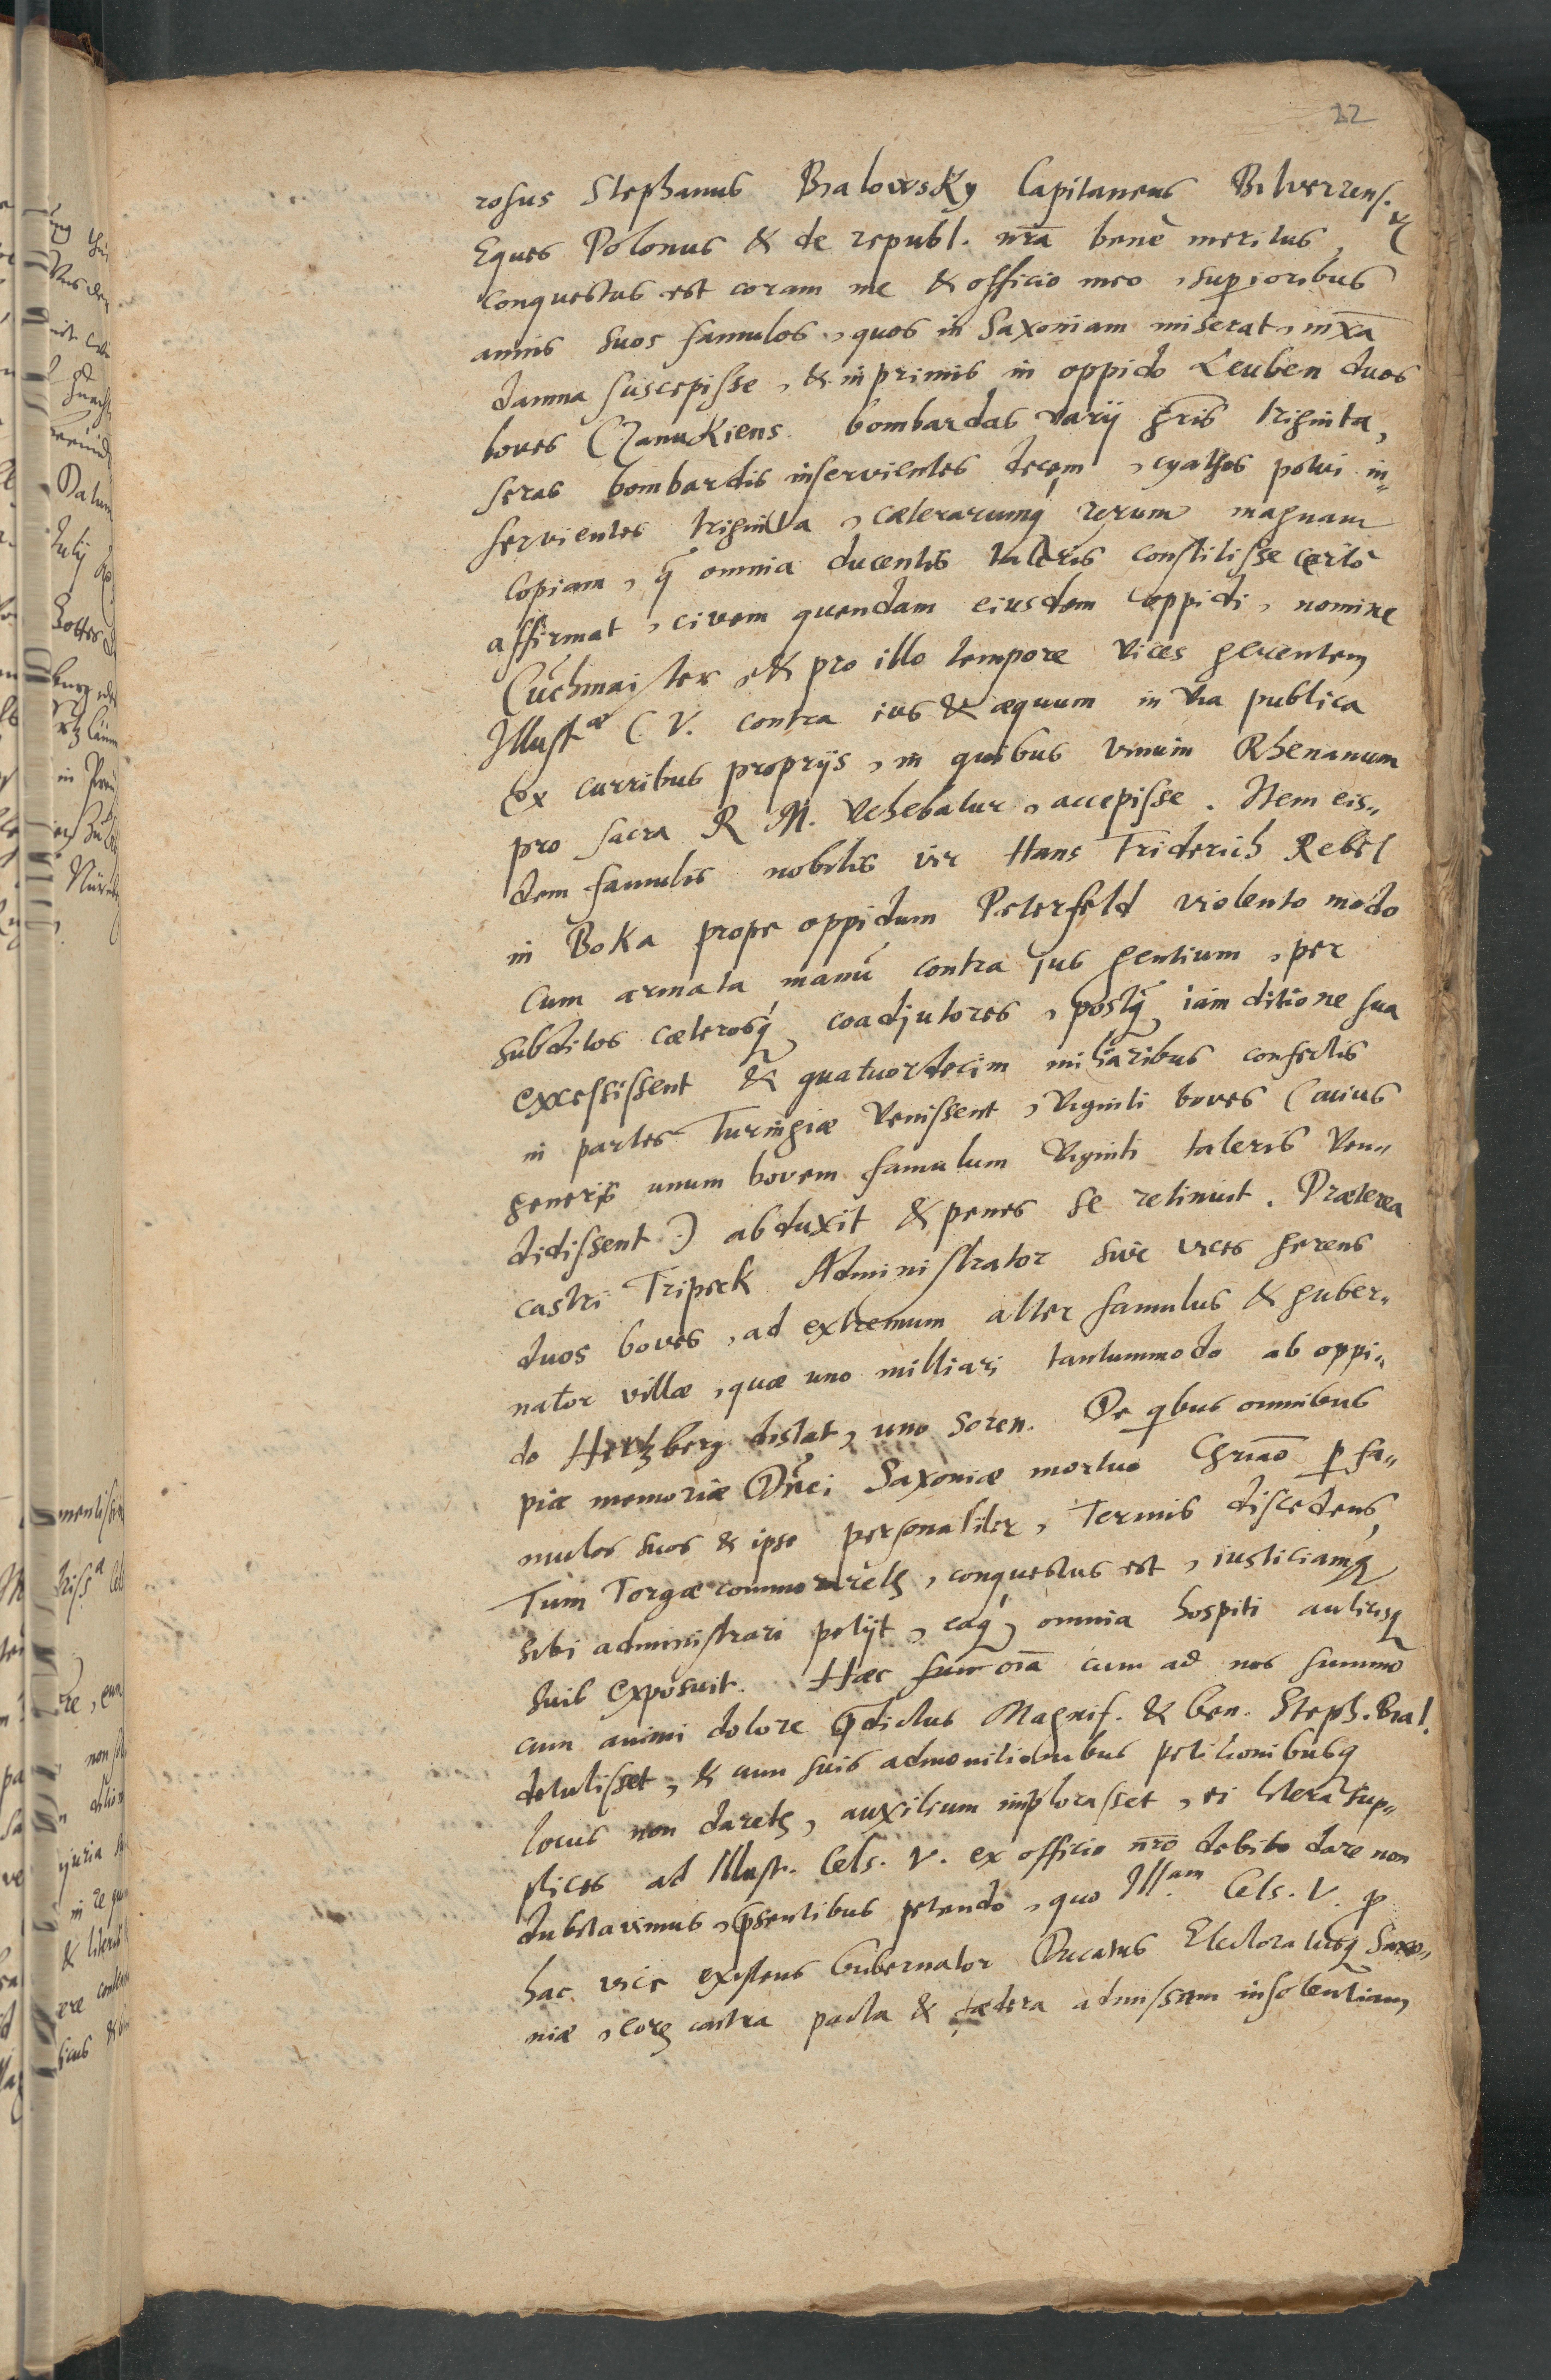 22
rosus Stephanus Bialowsky Capitaneus Bilverrens.
Eques Polonus & de republ. nr̄a benè meritus,
conquestus est coram me & officio meo, superioribus
annis suos famulos, quos in Saxoniam miserat,
damna suscepisse, & in primis in oppido Leuben duos
boves Czanukiens. bombardas varij gn̄ris triginta,
seras bombardis inservientes decem, cyathos potui in„
servientes triginta, cæterarumq́ rerum magnam
Copiam, q̄ omnia ducentis taleris constitisse certò
affirmat, civem quendam eiusdem oppidi, nomine
Cuchmaister, & pro illo tempore vices gerentem
Illustæ C V. contra ius & æquum in via publica
Ex curribus proprijs, in quibus vinum Rhenanum
pro sacra R M. vehebatur, accepisse. Item eis„
dem famulis nobilis vir Hans Friderich Rebel
in Boka prope oppidum Peterfeld violento modo
Cum armata manu contra jus gentium, per
subditos cæterosq́ coadjutores, postq̄ iam ditione sua
excessissent & quatuordecim miliaribus confectis
in partes Turingiæ venissent, viginti boves (cuius
generis unum bovem famulum viginti taleris ven„
didissent:) abduxit & penes se retinuit. Præterea
castri Tripsek Administrator sive vices gerens
duos boves, ad extremum alter famulus & guber„
nator villæ, quæ uno milliari tantummodo ab oppi„
do Hertzberg distat, uno Soren. De qbus omnibus
piæ memoriæ Saxoniæ mortuo p fa„
mulos suos & ipse personaliter, Termis discedens,
Tum Torgæ commoraretz, conquestus est, iusticiamq
sibi administrari petijt, eaq́ omnia hospiti aulicisq
suis exposuit. Hæc oīa cum ad nos summo
cum animi dolore p̄dictus Magnif. & Gen. Steph. Bial.
detulisset, & cum suis admonitionibus petitionibusq
locus non daretz, auxilium implorasset, ei literas sup„
plices ad Illust. Cels. V. ex officio nr̄o debito dare non
dubitavimus, p̄sentibus petendo, quo Ill.am Cels. V. p
hac vice existens Gubernator Ducatus Electoratusq Saxo„
niæ, contra pacta & fædera admissam insolentiam